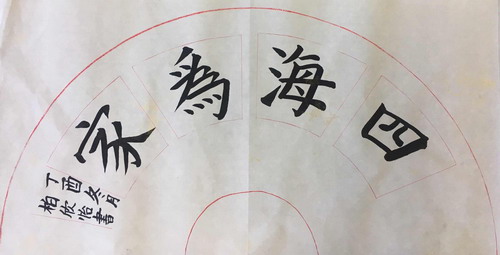 四海為家
丁酉冬月
柏欣怡書